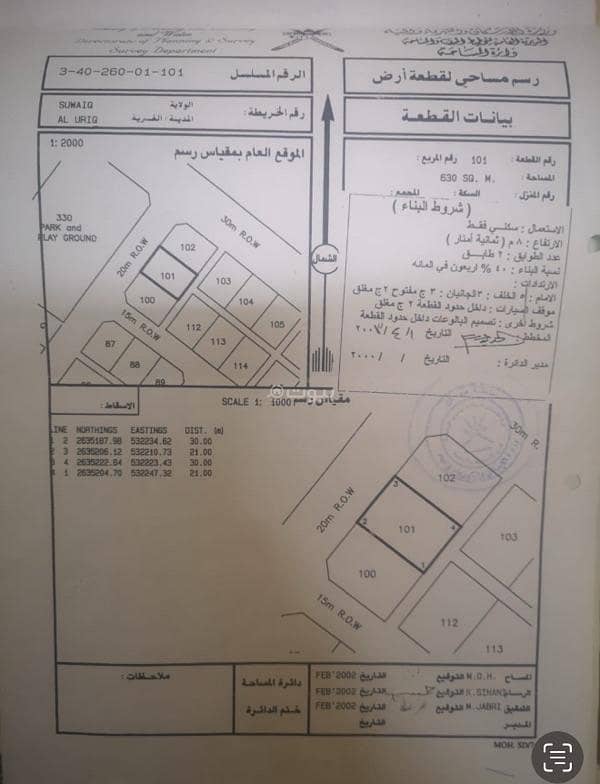 and Water
Directorate of Planning & Survey
Survey Department
دائرة المساحة
رسم مساحي لقطعة أرض
الرقم المسلسل
3-40-260-01-101
بيانات القطعة
رقم الخريطة:
الولاية
SUWAIQ
المدينة/القرية
AL URIQ
رقم القطعة: 101 رقم المربع:
المساحة: 630 SQ. M.
رقم المنزل: السكة: المجمع:
( شروط البناء )
الاستعمال: سكني فقط
الارتفاع: ٨ م ( ثمانية أمتار )
عدد الطوابق: ٢ طابق
نسبة البناء: ٤٠ % اربعون في المائه
الارتدادات:
الامام: ٥ الخلف: ٣ الجانبان: ٣ ج مفتوح ٢ ج مغلق
موقف السيارات: داخل حدود القطعة ٢ ج مغلق
شروط أخرى: تصميم البالوعات داخل حدود القطعة
المخطط: التاريخ
مدير الدائرة: التاريخ / / ٢٠٠٠
1: 2000
الموقع العام بمقياس رسم
الشمال
330
PARK and
PLAY GROUND
20m R.O.W
30m R.O.W
15m R.O.W
102
101
100
103
104
105
112
113
114
87
88
89
الاسقاط:
SCALE 1: 1000 مقياس رسم
LINE NORTHINGS EASTINGS DIST. (m)
1 2 2635187.98 532234.62 30.00
2 3 2635206.12 532210.73 21.00
3 4 2635222.64 532223.43 30.00
4 1 2635204.70 532247.32 21.00
30m R.
20m R.O.W
15m R.O.W
102
3
2
101
4
1
100
103
112
113
ملاحظات:
دائرة المساحة
ختم الدائرة
المساح M.O.H. التوقيع التاريخ FEB'2002
الرسام K.SINAN التوقيع التاريخ FEB'2002
التدقيق M.JABRI التوقيع التاريخ FEB'2002
المدير التاريخ